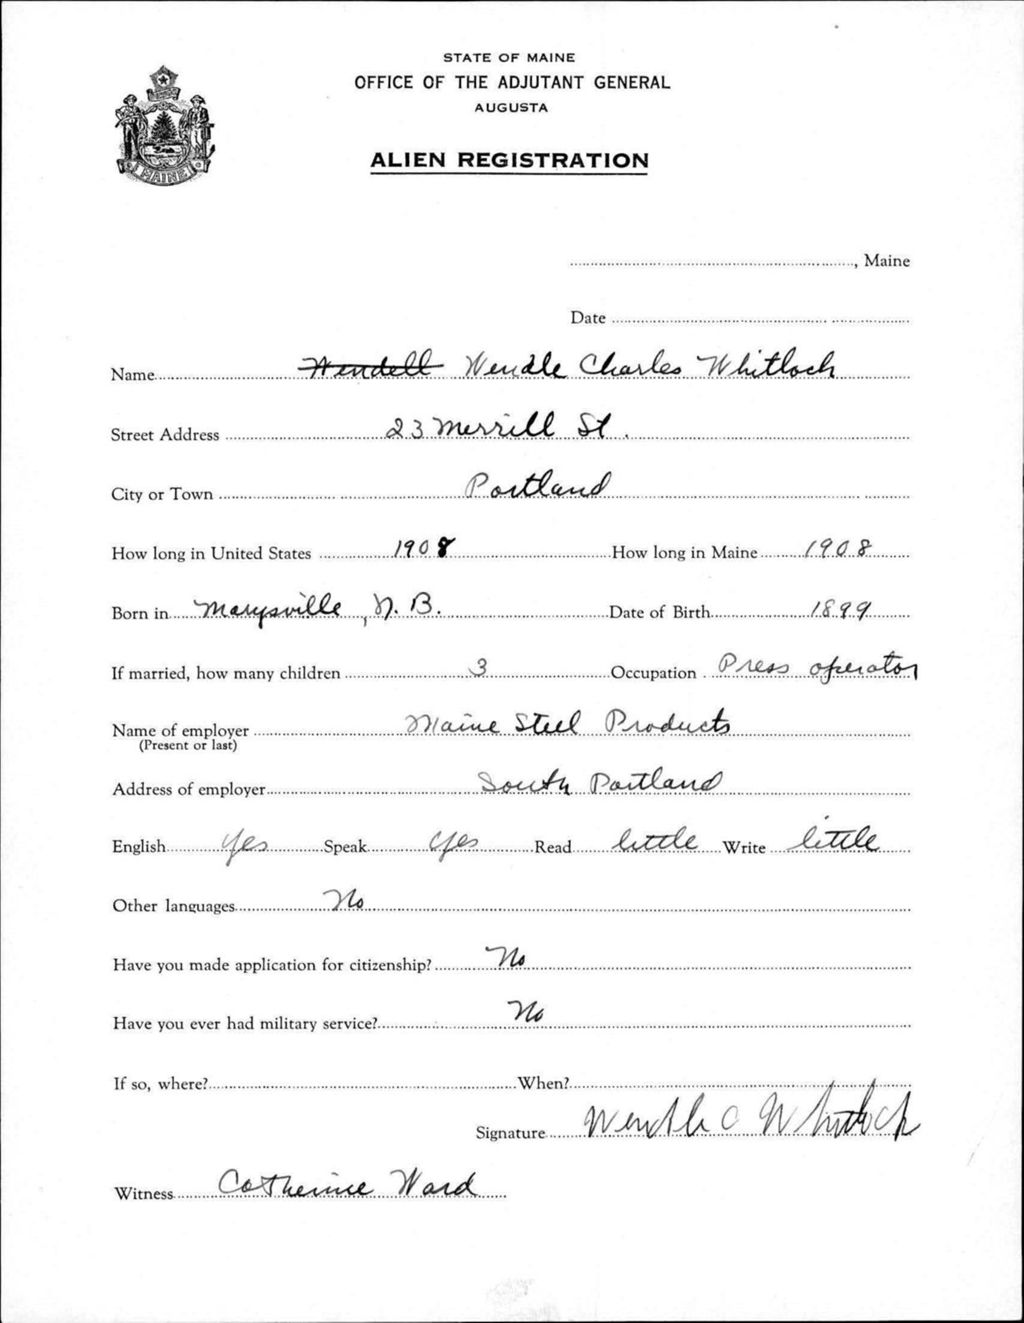 STATE OF MAINE
OFFICE OF THE ADJUTANT GENERAL
AUGUSTA
ALIEN REGISTRATION
MAINE
, Maine
Date
Name Wendell Wendle Charles Whitlock
Street Address 23 Merrill St.
City or Town Portland
How long in United States 1908 How long in Maine 1908
Born in Marysville, N.B. Date of Birth 1899
If married, how many children 3 Occupation Press operator
Name of employer Maine Steel Products
(Present or last)
Address of employer South Portland
English Yes Speak Yes Read little Write little
Other languages No
Have you made application for citizenship? No
Have you ever had military service? No
If so, where? When?
Signature Wendle C Whitlock
Witness Catherine Ward